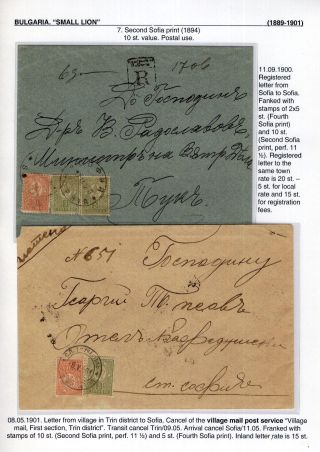 BULGARIA. "SMALL LION"
(1889-1901)
7. Second Sofia print (1894)
10 st. value. Postal use.
11.09.1900.
Registered
letter from
Sofia to Sofia.
Fanked with
stamps of 2x5
st. (Fourth
Sofia print)
and 10 st.
(Second Sofia
print, perf. 11
½). Registered
letter to the
same town
rate is 20 st. –
5 st. for local
rate and 15 st.
for registration
fees.
R
1706
До Господина
Д-ръ В. Радославовъ
Министръ на
Тукъ
№ 651
Господину
Георгий
Отелъ
ст. София
08.05.1901. Letter from village in Trin district to Sofia. Cancel of the village mail post service "Village
mail, First section, Trin district". Transit cancel Trin/09.05. Arrival cancel Sofia/11.05. Franked with
stamps of 10 st. (Second Sofia print, perf. 11 ½) and 5 st. (Fourth Sofia print). Inland letter rate is 15 st.